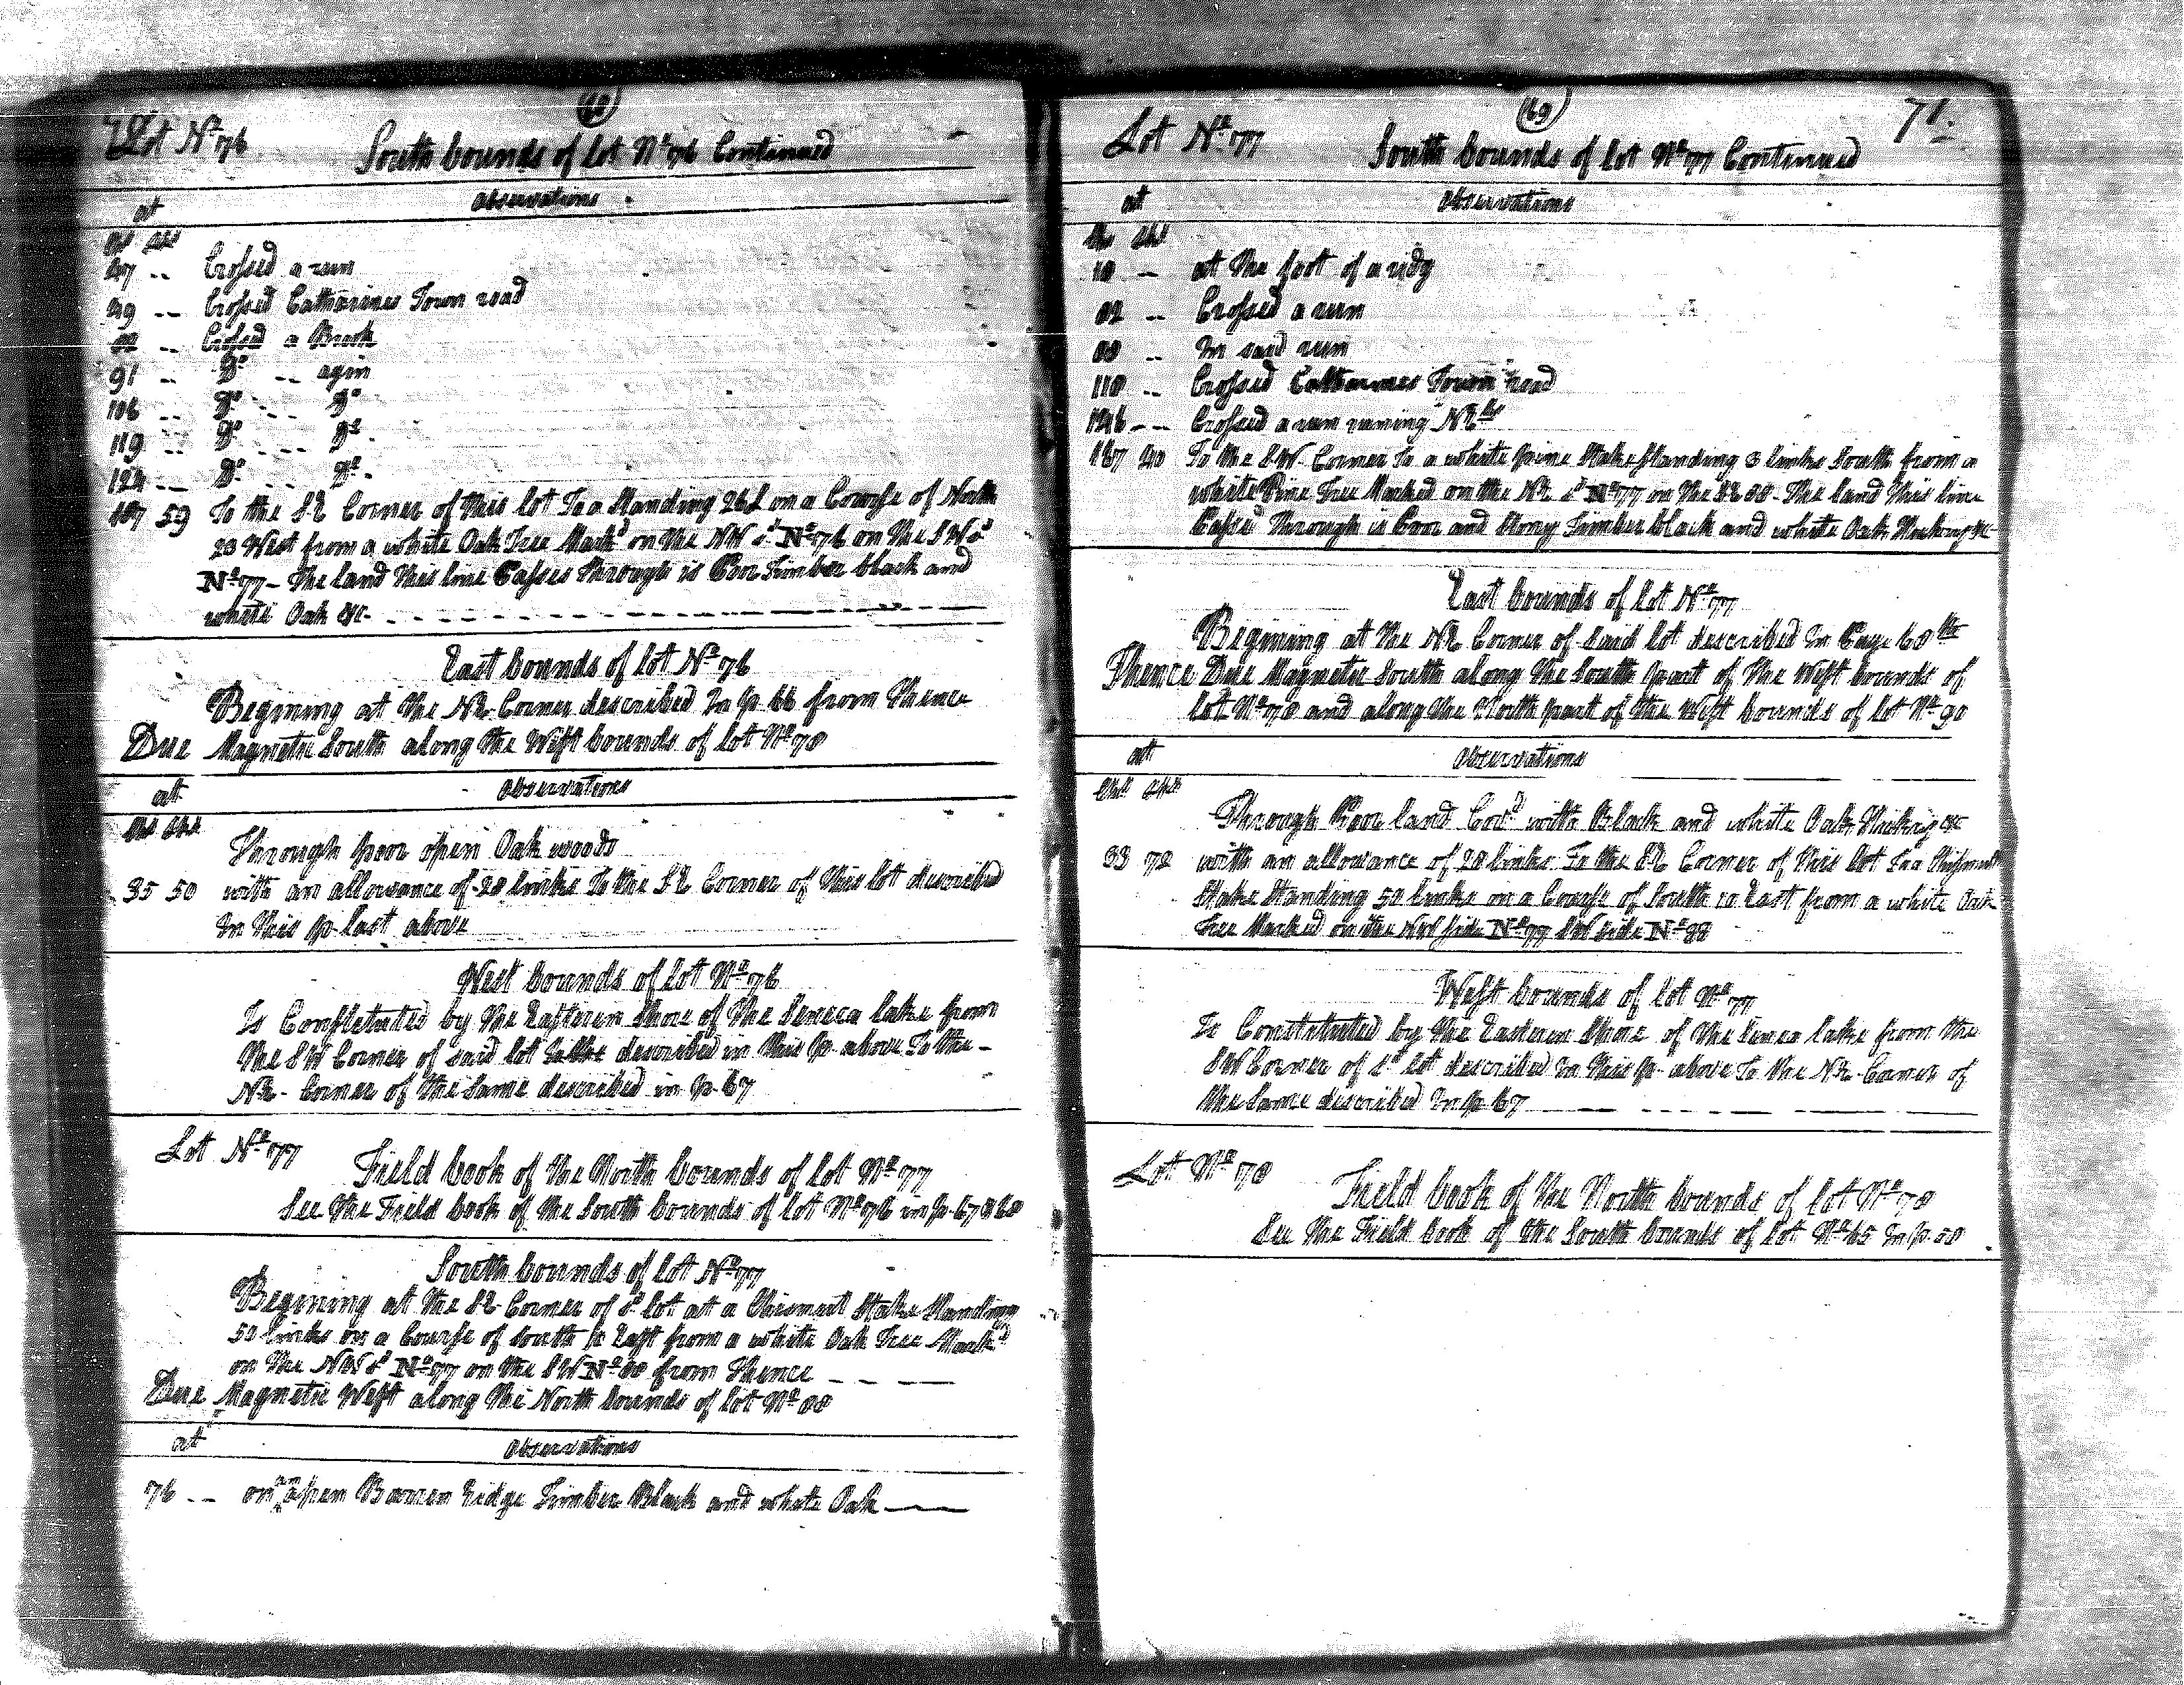 (68)
Lot Nº 76
South bounds of lot Nº 76 Continued
at Observations
Chs Lks
47 -- Crossed a run
49 -- Crossed Catharines Town road
82 -- Crossed a Brook
91 -- Dº -- agin
106 -- Dº -- Dº
119 -- Dº -- Dº
124 -- Dº -- Dº
187 59 To the SE Corner of this lot To a Standing 26 L on a Course of North
23 West from a white Oak Tree Markd on the NW sd Nº 76 on the SW sd
Nº 77 - The land this line Passes through is Poor Timber black and
white Oak &c -
East bounds of lot Nº 76
Begining at the NE Corner described In p 66 from Thence
Due Magnetic South along the West bounds of lot Nº 78
at Observations
Chs Lks
Through poor open Oak woods
35 50 with an allowance of 20 links To the SE Corner of this lot described
In this p last above
West bounds of lot Nº 76
Is Constetuted by the Eastern Shore of the Seneca lake from
the SW Corner of said lot described in this p above To the -
NE - Corner of the Same described in p 67
Lot Nº 77
Field book of the North bounds of lot Nº 77
See the Field book of the South bounds of lot Nº 76 in p 67 & 68
South bounds of lot Nº 77
Begining at the SE Corner of sd lot at a Chisnut Stake Standing
50 links on a Course of South 10 East from a white Oak Tree Markd
on the NW sd Nº 77 on the SW Nº 88 from Thence
Due Magnetic West along the North bounds of lot Nº 88
at Observations
76 -- on open Barren ridge Timber Black and white Oak
(69)
71.
Lot Nº 77
South bounds of lot Nº 77 Continued
at Observations
Chs Lks
18 - at the foot of a ridg
82 -- Crossed a run
88 -- In said run
110 -- Crossed Catharines Town road
146 -- Crossed a run runing
187 40 To the SW Corner To a white pine Stake Standing 3 links South from a
white Pine Tree Marked on the NE sd Nº 77 on the SE 88 - The land this line
Passes Through is Poor and Stony Timber black and white Oak Hickory &c
East bounds of lot Nº 77
Begining at the NE Corner of Said lot described In Page 68th
Thence Due Magnetic South along the South part of the West bounds of
lot Nº 78 and along the North part of the West bounds of lot Nº 90
at Observations
Chs Lks
Through Poor land Covd with Black and white Oak Hickry &c
33 72 with an allowance of 20 links To the SE Corner of this lot To a Chisnutt
Stake Standing 50 links on a Course of South 10 East from a white Oak
Tree Marked on the NW side Nº 77 SW side Nº 88
West bounds of lot Nº 77
Is Constetuted by the Eastern Shore of the Seneca lake from the
SW Corner of sd lot described In this p above To the NE Corner of
the Same described In p 67
Lot Nº 78
Field book of the North bounds of lot Nº 78
See the Field book of the South bounds of lot Nº 65 In p 58